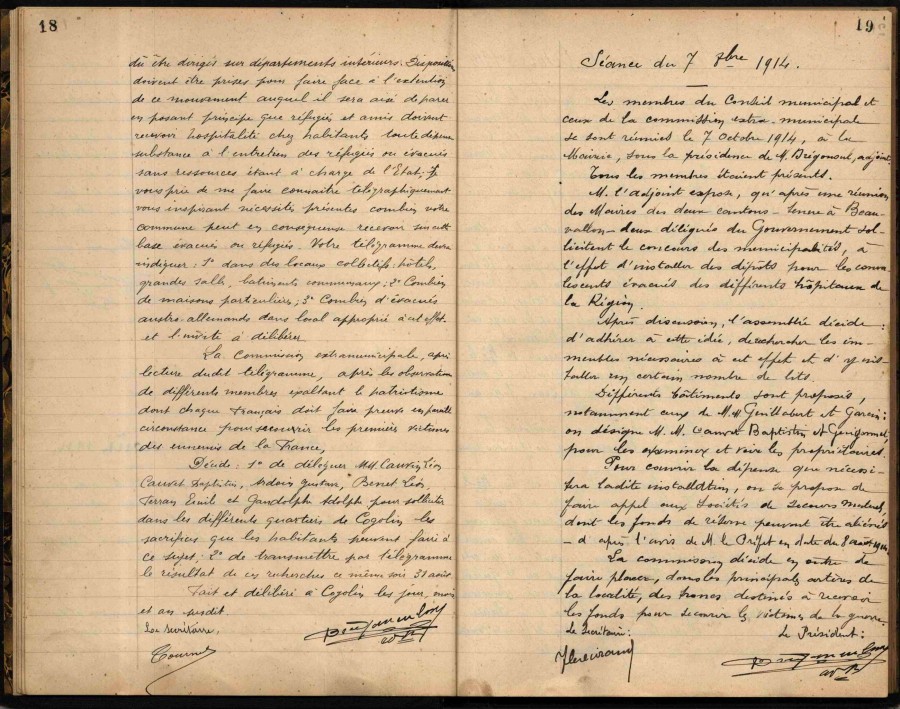 18
dû être dirigés sur départements intérieurs. Disposition
doivent être prises pour faire face à l'extention
de ce mouvement auquel il sera aisé de parer
en posant principe que réfugiés et amis doivent
recevoir hospitalité chez habitants toute dépense
substance à l'entretien des réfugiés ou évacués
sans ressources étant à charge de l'Etat. Je
vous prie de me faire connaitre télégraphiquement
vous inspirant nécessités présentes combien votre
commune peut en conséquence recevoir sur cette
base évacués ou réfugiés. Votre télégramme devra
indiquer: 1° dans des locaux collectifs: hôtels,
grandes salles, batiments communaux; 2° Combien
de maisons particulières; 3° Combien d'évacués
austro-allemands dans local approprié à cet effet.
et l'invite à délibérer
La Commission extramunicipale, après
lecture dudit télégramme, après les observations
de différents membres exaltant le patriotisme
dont chaque Français doit faire preuve en pareille
circonstance pour secourir les premières victimes
des ennemis de la France,
Décide: 1° de déléguer MM. Cauvin Léon
Cauvet Baptistin, Gustave, Benet Léon,
Ferran Emile et Gandolphe Adolphe pour solliciter
dans les différents quartiers de Cogolin les
sacrifices que les habitants peuvent faire à
ce sujet; 2° de transmettre par télégramme
le résultat de ces recherches ce même soir 31 août.
Fait et délibéré à Cogolin les jour, mois
et an susdit.
Le secrétaire,
Tournel
19
Séance du 7 8bre 1914.
Les membres du Conseil municipal et
ceux de la commission extra-municipale
se sont réunies le 7 Octobre 1914, à la
Mairie, sous la présidence de M. Brégonsul, adjoint.
Tous les membres étaient présents.
M. l'adjoint expose, qu'après une réunion
des Maires des deux cantons - tenue à Beau-
vallon - deux délégués du Gouvernement sol-
licitent le concours des municipalités, à
l'effet d'installer des dépôts pour les conva-
lescents évacués des différents hôpitaux de
la Région.
Après discussion, l'assemblée décide:
d'adhérer à cette idée, de rechercher les im-
meubles nécessaires à cet effet et d'y ins-
taller un certain nombre de lits.
Différents bâtiments sont proposés,
notamment ceux de M. M Guillabert et Garcin:
on désigne M. M. Cauvet Baptistin et
pour les examiner et voir les propriétaires.
Pour couvrir la dépense que nécessi-
tera ladite installation, on se propose de
faire appel aux Sociétés de Secours Mutuel,
dont les fonds de réserve peuvent être aliénés
- d'après l'avis de M. le Préfet en date du 8 août 1914
La commission décide en outre de
faire placer, dans les principales artères de
la localité, des troncs destinés à recevoir
les fonds pour secourir les victimes de la guerre.
Le Secrétaire:
Le Président: